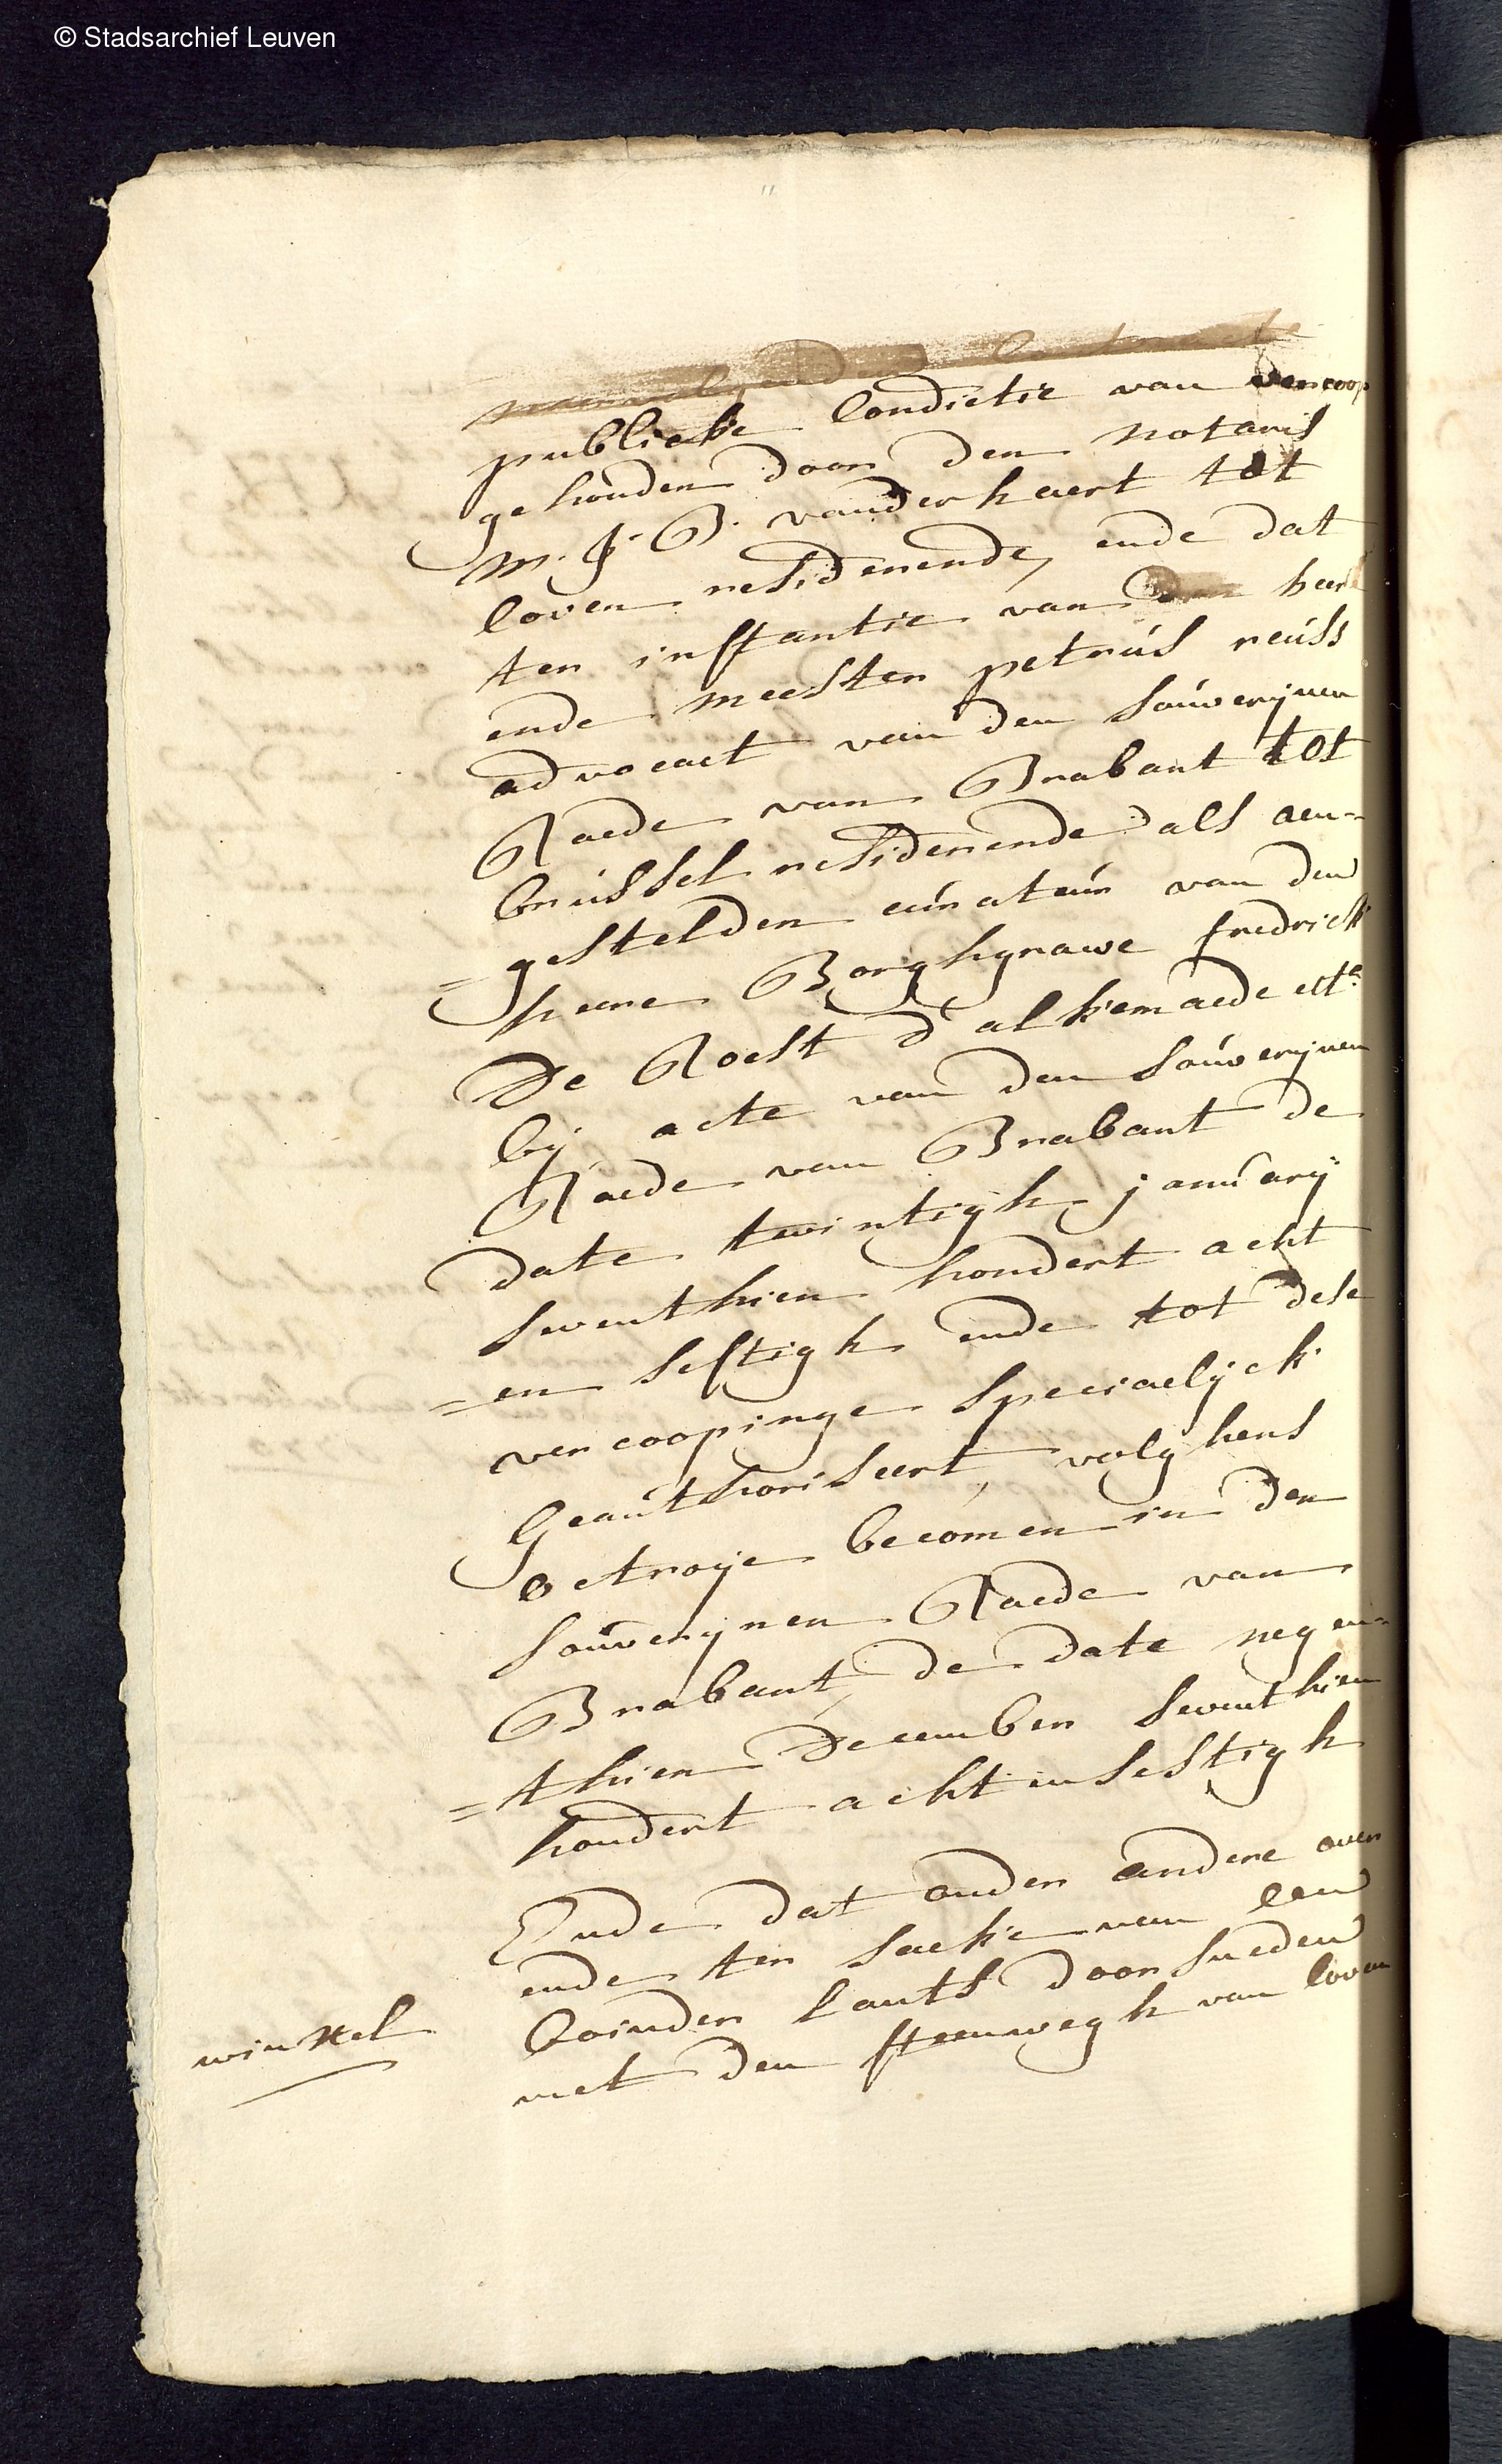 © Stadsarchief Leuven
publicke Condictie van vercoop
gehouden door den notaris
M. J. B. vanderhaert tot
loven residerende, ende dat
ter instantie van heer
ende meester petrus reuss
advocaet van den souverijnen
Raede van Brabant tot
brussel residerende als aen-
=gestelden curateur van den
heere Borghgrawe fredrick
De Roest d'alkemaede etta
bij acte van den souverijnen
Raede van Brabant de
date twintigh januarij
seventhien hondert acht
=en sestigh ende tot dese
vercoopinge specialijck
Geauthoriseert, volghens
octroije becomen in den
souverijnen Raede van
Brabant, de date negen-
=thien December seventhien
hondert acht en sestigh
Ende dat onder andere over
ende ter saeke van een
boinder lants doorsneden
winxel
met den steenwegh van loven